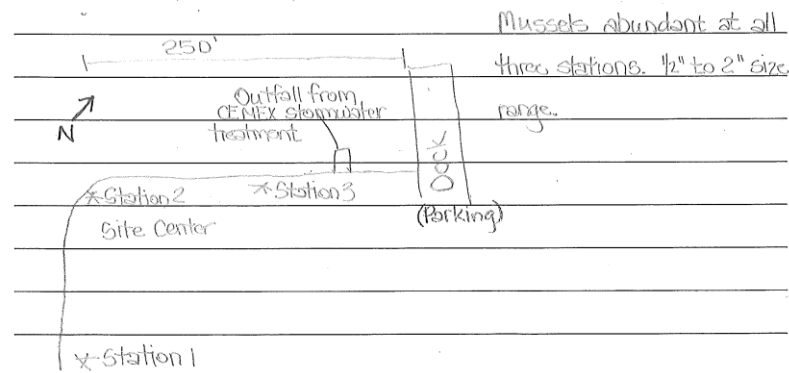 Mussels abundant at all
three stations. 1/2" to 2" size
range.
250'
Outfall from
CEMEX stormwater
treatment
N
Dock
*Station 2
*Station 3
(Parking)
Site Center
*Station 1